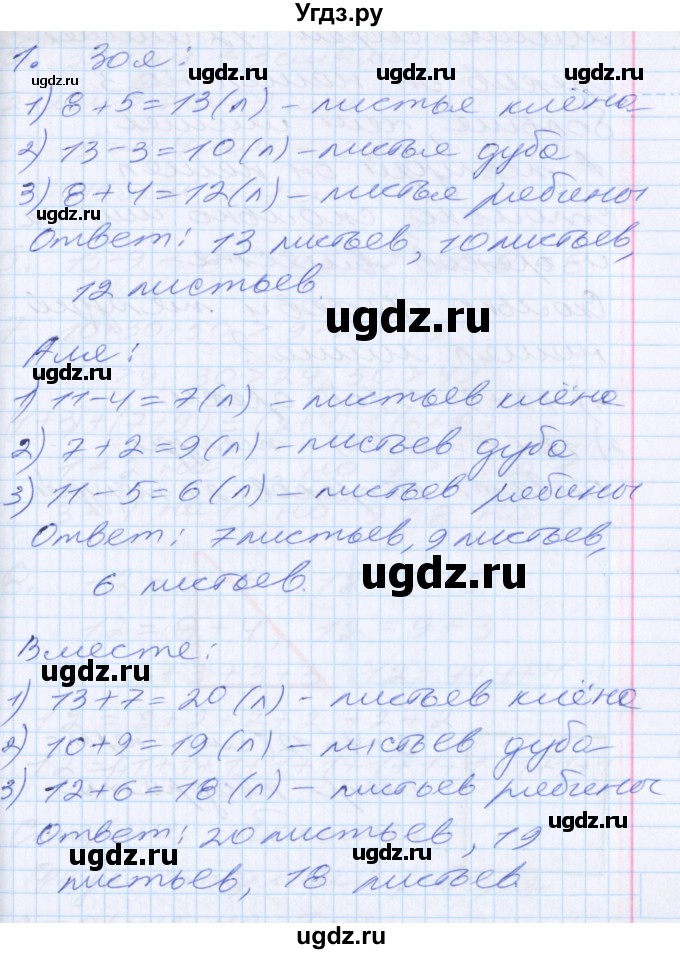 Угдз.ру
1. Зоя:
ugdz.ru ugdz.ru ugdz.ru
1) 8+5=13(л) – листья клёна
2) 13-3=10(л) – листья дуба
3) 8+4=12(л) – листья рябины
ugdz.ru ugdz.ru
Ответ: 13 листьев, 10 листьев,
12 листьев.
ugdz.ru
Аля:
ugdz.ru
1) 11-4=7(л) – листьев клёна
2) 7+2=9(л) – листьев дуба
3) 11-5=6(л) – листьев рябины
Ответ: 7 листьев, 9 листьев,
6 листьев.
ugdz.ru
Вместе:
ugdz.ru
1) 13+7=20(л) – листьев клёна
2) 10+9=19(л) – листьев дуба
3) 12+6=18(л) – листьев рябины
ugdz.ru
Ответ: 20 листьев, 19
ugdz.ru ugdz.ru
листьев, 18 листьев
ugdz.ru